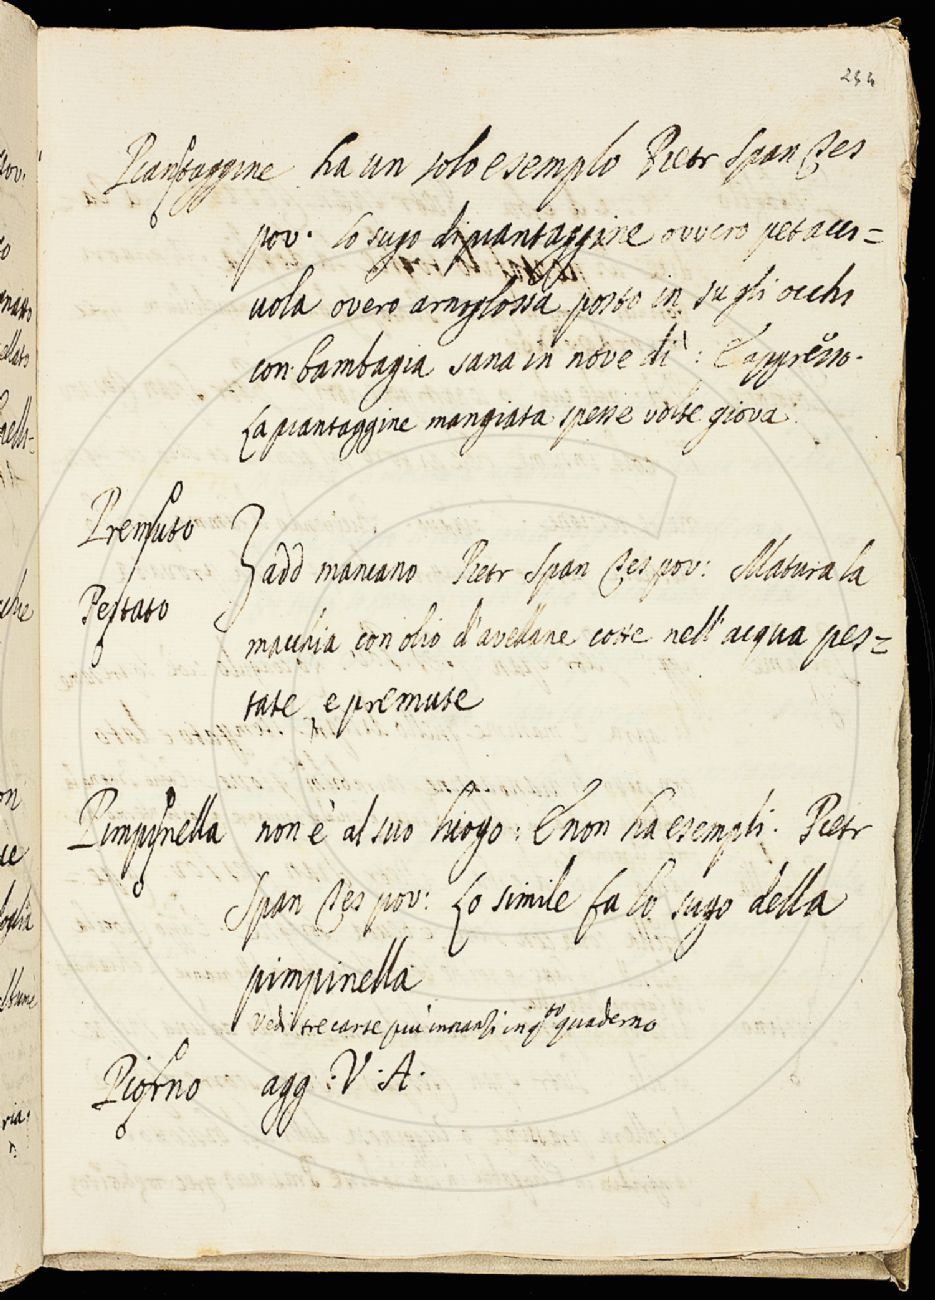 244
Piantaggine ha un solo esemplo Pietr Span Tes
pov. Lo sugo di piantaggine ovvero petacci=
uola overo arnoglossa posto in su gli occhi
con bambagia sana in nove dì : E appresso.
La piantaggine mangiata spesse volte giova
Premuto
Pestato
add mancano Pietr Span Tes pov: Matura la
macchia con olio d'avellane cotte nell'acqua pes=
tate e premute
Pimpinella non è al suo luogo : E non ha esempli. Pietr
Span Tes pov: Lo simile fa lo sugo della
pimpinella
Vedi tre carte più innanzi in qsto quaderno
Piorno agg : V. A.